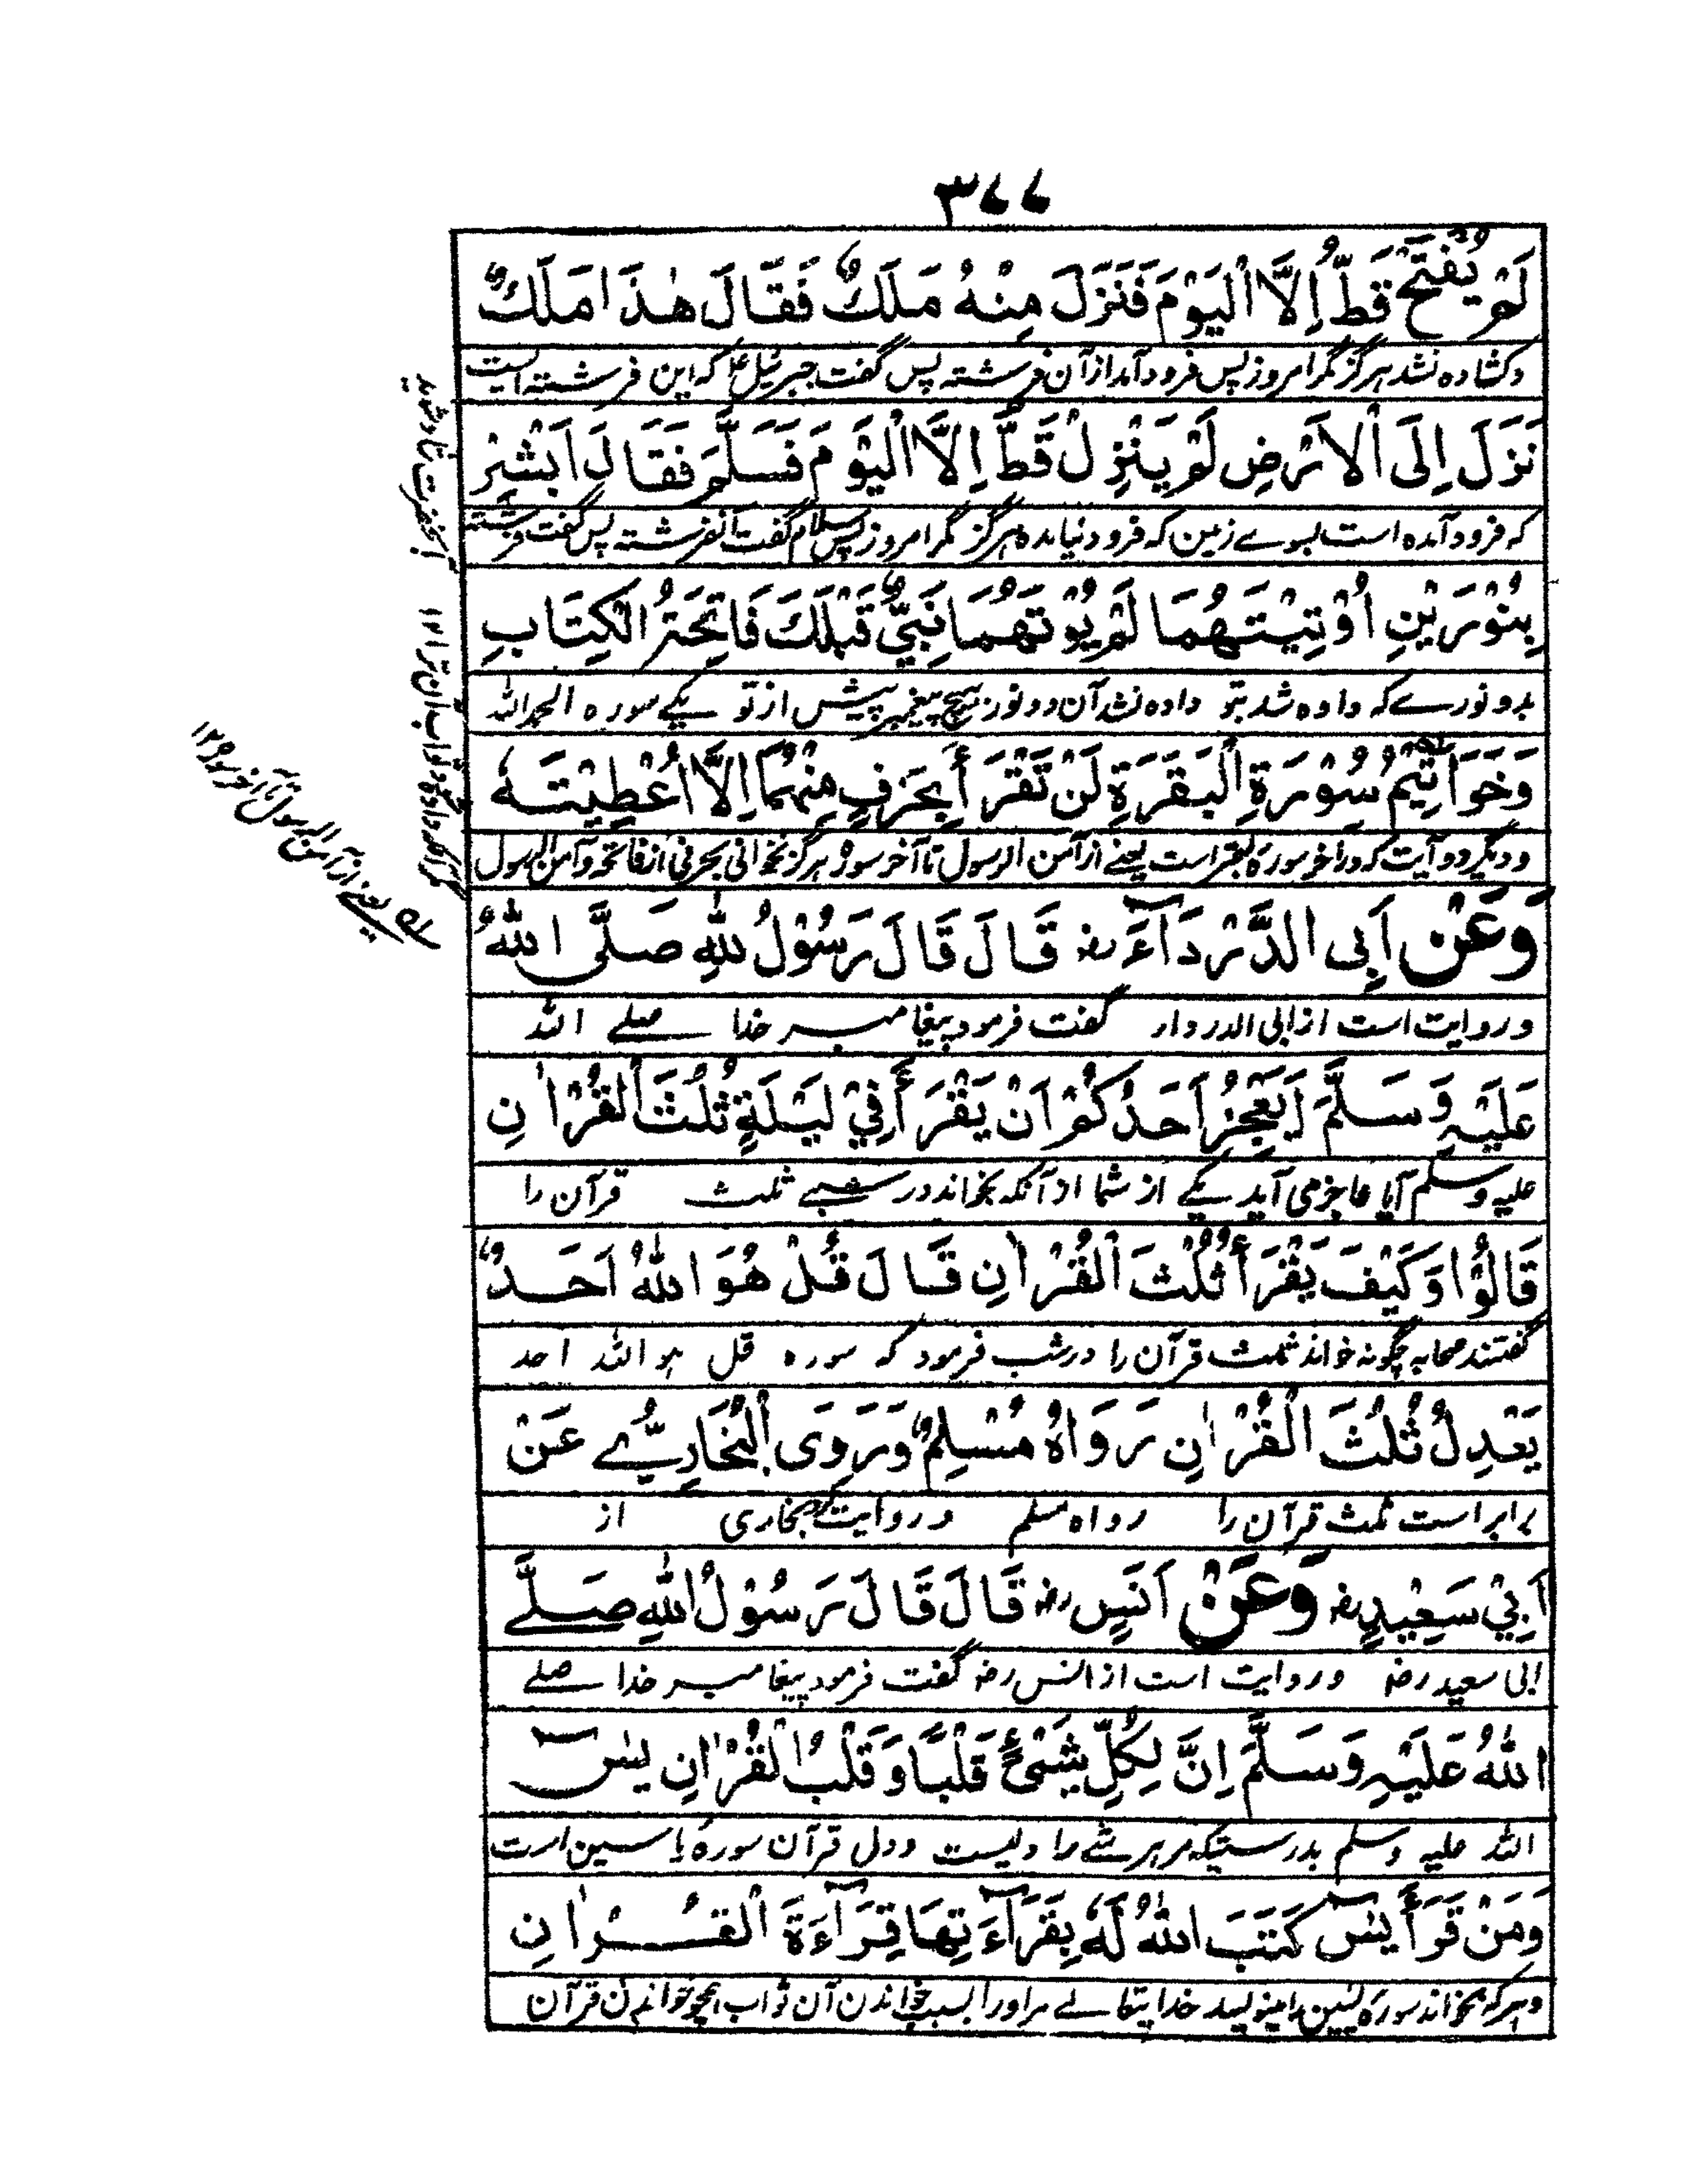 ٣٧٧
لَمْ يُفْتَحْ قَطُّ اِلَّا الْيَوْمَ فَنَزَلَ مِنْهُ مَلَكٌ فَقَالَ هٰذَا مَلَكٌ
وكشاده نشد هرگز مگر امروز پس فرود آمد ازآن فرشته پس گفت جبرئيل ع كه اين فرشته ايست
نَزَلَ اِلَى الْاَرْضِ لَمْ يَنْزِلْ قَطُّ اِلَّا الْيَوْمَ فَسَلَّمَ فَقَالَ اَبْشِرْ
كه فرود آمده است بسوے زمين كه فرود نيامده هرگز مگر امروز پس سلام گفت آنفرشته پس گفت فرشته
بِنُوْرَيْنِ اُوْتِيْتَهُمَا لَمْ يُوْتَهُمَا نَبِيٌّ قَبْلَكَ فَاتِحَةُ الْكِتَابِ
بدو نورے كه داده شد بتو داده نشد آن دو نور هيچ پيغمبر پيش از تو يكے سوره الحمدالله
وَخَوَاتِيْمُ سُوْرَةِ الْبَقَرَةِ لَنْ تَقْرَأَ بِحَرْفٍ مِنْهُمَا اِلَّا اُعْطِيْتَهٗ
و ديگر دو آيت كه درآخر سورهٔ بقر است يعنے ازآمن الرسول تا آخر سوره هرگز نخوانى بحرفى از فاتحه و آمن الرسول
وَعَنْ اَبِى الدَّرْدَآءَ رض قَالَ قَالَ رَسُوْلُ اللهِ صَلَّى اللهُ
و روايت است از ابى الدردار گفت فرمود پيغامبر خدا صلے الله
عَلَيْهِ وَسَلَّمَ اَيَعْجِزُ اَحَدُكُمْ اَنْ يَقْرَأَ فِيْ لَيْلَةٍ ثُلُثَ الْقُرْاٰنِ
عليه وسلم آيا عاجز مى آيد يكے از شما از آنكه بخواند در شبے ثلث قرآن را
قَالُوْا وَكَيْفَ يَقْرَأُ ثُلُثَ الْقُرْاٰنِ قَالَ قُلْ هُوَ اللهُ اَحَدٌ
گفتند صحابه چگونه خواند ثلث قرآن را درشب فرمود كه سوره قل هو الله احد
يَعْدِلُ ثُلُثَ الْقُرْاٰنِ رَوَاهُ مُسْلِمٌ وَرَوَى الْبُخَارِيُّ عَنْ
برابر است ثلث قرآن را رواه مسلم و روايت كرد بخارى از
اَبِيْ سَعِيْدٍ رض وَعَنْ اَنَسٍ رض قَالَ قَالَ رَسُوْلُ اللهِ صَلَّے
ابى سعيد رض و روايت است از انس رض گفت فرمود پيغامبر خدا صلے
اللهُ عَلَيْهِ وَسَلَّمَ اِنَّ لِكُلِّ شَىْءٍ قَلْبًا وَقَلْبُ الْقُرْاٰنِ يٰسٓ
الله عليه وسلم بدرستيكه مر هر شے را دليست و دل قرآن سورهٔ ياسين است
وَمَنْ قَرَأَ يٰسٓ كَتَبَ اللهُ لَهٗ بِقَرَآءَتِهَا قِرَآءَةَ الْقُرْاٰنِ
وهر كه بخواند سورهٔ يٰسين را مينويسد خدايتعالے مراورا بسبب خواندن آن ثواب همچو خواندن قرآن
مگر آنكه داده شود ثواب آن ترا ١٢
يعنے از آمن الرسول تا آخر سوره ١٢